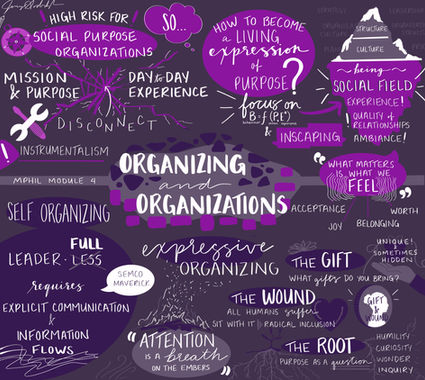 HIGH RISK FOR
SOCIAL PURPOSE
ORGANIZATIONS
SO...
MISSION
& PURPOSE
DAY to DAY
EXPERIENCE
DISCONNECT
! INSTRUMENTALISM
HOW TO BECOME
a LIVING
expression
of
PURPOSE?
focus on
B=f(P,E)
& INSCAPING
STRUCTURE
CULTURE
being
SOCIAL FIELD
EXPERIENCE!
QUALITY of
RELATIONSHIPS
AMBIANCE!
MPHIL MODULE 4
ORGANIZING
and
ORGANIZATIONS
"WHAT MATTERS
IS WHAT WE
FEEL"
ACCEPTANCE
JOY
BELONGING
WORTH
SELF ORGANIZING
FULL
LEADER · LESS
requires
EXPLICIT COMMUNICATION
&
INFORMATION
FLOWS
SEMCO
MAVERICK
expressive
ORGANIZING
"ATTENTION
IS A breath
ON THE EMBERS"
THE GIFT
WHAT gifts DO YOU BRING?
UNIQUE!
& SOMETIMES
HIDDEN
THE WOUND
ALL HUMANS suffer
SIT WITH IT RADICAL INCLUSION
GIFT
&
WOUND
THE ROOT
PURPOSE AS a question
HUMILITY
CURIOSITY
WONDER
INQUIRY